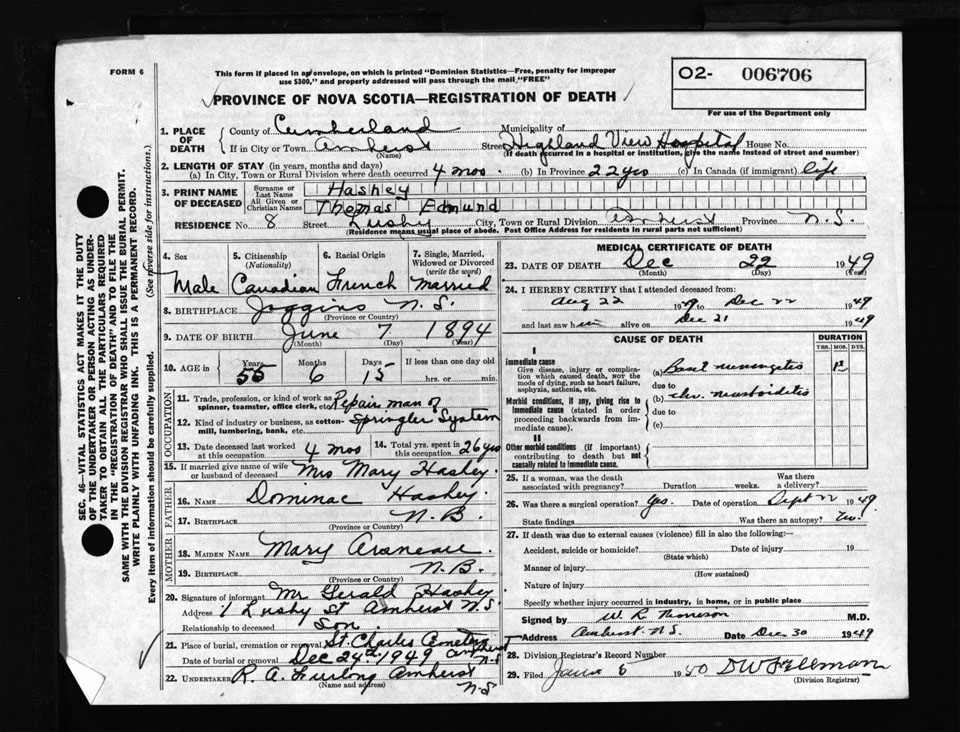 FORM 6
This form if placed in an envelope, on which is printed "Dominion Statistics—Free, penalty for improper
use $300," and properly addressed will pass through the mail "FREE"
O2- 006706
For use of the Department only
PROVINCE OF NOVA SCOTIA—REGISTRATION OF DEATH
1. PLACE OF DEATH
County of Cumberland Municipality of
If in City or Town Amherst Street Highland View Hospital House No.
(Name) (If death occurred in a hospital or institution, give the name instead of street and number)
2. LENGTH OF STAY (in years, months and days)
(a) In City, Town or Rural Division where death occurred 4 mos. (b) In Province 22 yrs (c) In Canada (if immigrant) life
3. PRINT NAME OF DECEASED
Surname or Last Name Hashey
All Given or Christian Names Thomas Edmund
RESIDENCE No. 8 Street Lusby City, Town or Rural Division Amherst Province N.S.
(Residence means usual place of abode. Post Office Address for residents in rural parts not sufficient)
4. Sex 5. Citizenship (Nationality) 6. Racial Origin 7. Single, Married, Widowed or Divorced (write the word)
Male Canadian French Married
8. BIRTHPLACE Joggins N.S.
(Province or Country)
9. DATE OF BIRTH June 7 1894
(Month) (Day) (Year)
10. AGE in Years Months Days If less than one day old
55 6 15 hrs. or min.
OCCUPATION
11. Trade, profession, or kind of work as spinner, teamster, office clerk, etc. Repair man of
12. Kind of industry or business, as cotton-mill, lumbering, bank, etc. Springler System
13. Date deceased last worked at this occupation 4 mos 14. Total yrs. spent in this occupation 26 yrs
15. If married give name of wife or husband of deceased Mrs Mary Hashey.
FATHER
16. NAME Dominac Hashey.
17. BIRTHPLACE N.B.
(Province or Country)
MOTHER
18. MAIDEN NAME Mary Arsneau.
19. BIRTHPLACE N.B.
(Province or Country)
20. Signature of informant Mr Gerald Hashey
Address 1 Lusby St Amherst N.S.
Relationship to deceased Son.
21. Place of burial, cremation or removal St. Charles Cemetery Amherst N.S
Date of burial or removal Dec 24th 1949
22. UNDERTAKER R. A. Furlong Amherst N.S
(Name and address)
MEDICAL CERTIFICATE OF DEATH
23. DATE OF DEATH Dec 22 1949
(Month) (Day) (Year)
24. I HEREBY CERTIFY that I attended deceased from:
Aug 22 to Dec 22 1949
and last saw him alive on Dec 21 1949
CAUSE OF DEATH DURATION
YRS. MOS. DYS.
I
Immediate cause
Give disease, injury or complication which caused death, not the mode of dying, such as heart failure, asphyxia, asthenia, etc.
(a) Bact meningitis
due to
Morbid conditions, if any, giving rise to immediate cause (stated in order proceeding backwards from immediate cause).
(b) chr. mastoiditis
due to
(c)
II
Other morbid conditions (if important) contributing to death but not causally related to immediate cause.
25. If a woman, was the death associated with pregnancy? Duration weeks. Was there a delivery?
26. Was there a surgical operation? Yes. Date of operation Sept 22 1949.
State findings Was there an autopsy? No.
27. If death was due to external causes (violence) fill in also the following:—
Accident, suicide or homicide? Date of injury 19
(State which)
Manner of injury
(How sustained)
Nature of injury
Specify whether injury occurred in industry, in home, or in public place
Signed by M.D.
Address Amherst N.S. Date Dec 30 1949
28. Division Registrar's Record Number
29. Filed 1950
(Division Registrar)
SEC. 46—VITAL STATISTICS ACT MAKES IT THE DUTY
OF THE UNDERTAKER OR PERSON ACTING AS UNDER-
TAKER TO OBTAIN ALL THE PARTICULARS REQUIRED
IN THE "REGISTRATION OF DEATH" AND TO FILE THE
SAME WITH THE DIVISION REGISTRAR WHO SHALL ISSUE THE BURIAL PERMIT.
WRITE PLAINLY WITH UNFADING INK. THIS IS A PERMANENT RECORD.
Every item of information should be carefully supplied. (See reverse side for instructions.)